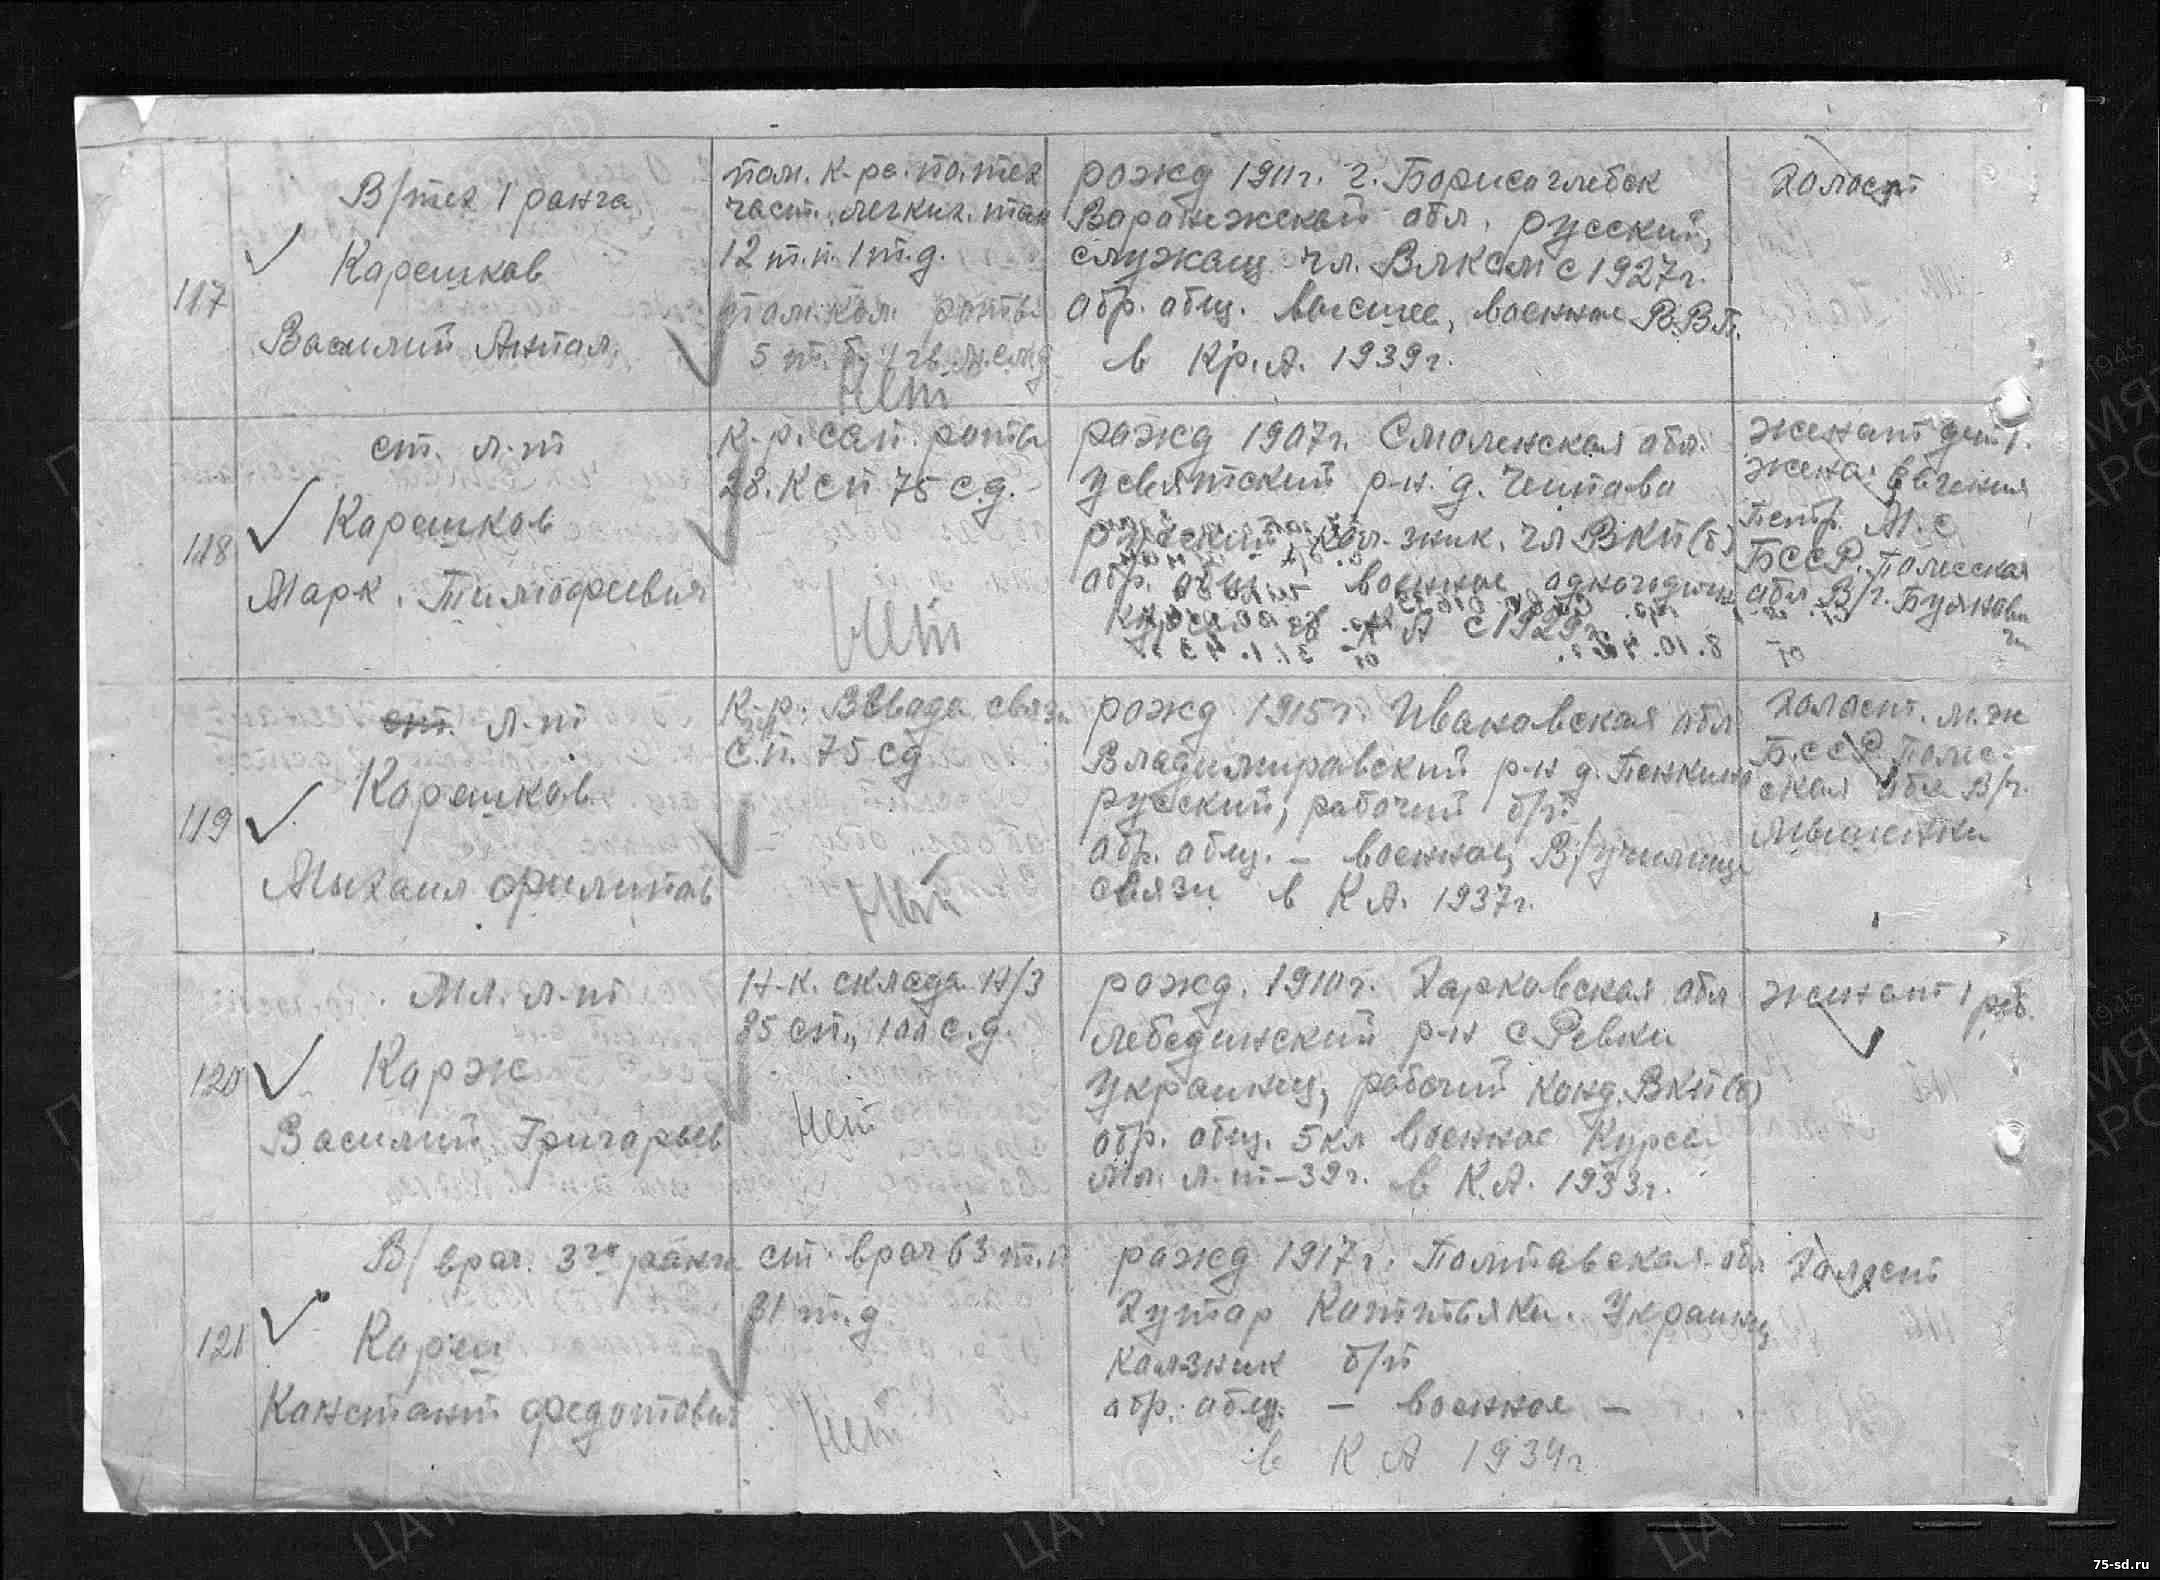 117
В/тех 1 ранга
Карешков
Василий Антол.
пом. к-ра по тех
част. легких. тан
12 т.п. 1 т.д.
роты
нет
рожд 1911г. г. Борисоглебск
Воронежской обл. русский,
служащ чл. ВЛКСМ с 1927г.
обр. общ. высшее, военное В.В.П.
в Кр.А. 1939г.
холост
118
ст. л-т
Карешков
Марк. Тимофеевич
К-р. сап. роты
28. Ксп 75 с.д.
нет
рожд 1907г. Смоленская обл.
Усвятский р-н. д.
русский, кол-зник. чл ВКП(б)
обр. общ. – военное одногодичн
К А с 1929г.
8.10.
от 31.1.43 г.
от
женат дет 1.
жена Евгения
Петр. М.с
БССР. Полесская
обл В/г.
119
ст. л-т
Карешков
Михаил Филипов
К-р. Взвода связи
с.п. 75 сд
нет
рожд 1915г. Ивановская обл
Владимировский р-н д. Пенкино
русский, рабочий б/п
обр. общ. – военное, В/училище
связи в К А. 1937г.
холост. м.ж
Б.ССР Полес-
ская обл В/г.
Мышенки
120
Мл. л-т
Карэж
Василий Григорьев
Н-к. склада Н/З
85 сп., 100 с.д.
нет
рожд. 1910г. Харковская обл
Лебединский р-н с Ревки
украинец, рабочий Канд. ВКП(б)
обр. общ. 5кл военное Курсы
Мл. л-т–39г. в К.А. 1933г.
женат 1 реб.
121
В/врач. 3го ранга
Карец
Констант Федотович
ст. врач 63 т.п
31 т.д
нет
рожд 1917г. Полтавская обл
Хутор Украинец
колзник б/п
обр. общ. – военное –
в К А 1934г
Холост
75-sd.ru